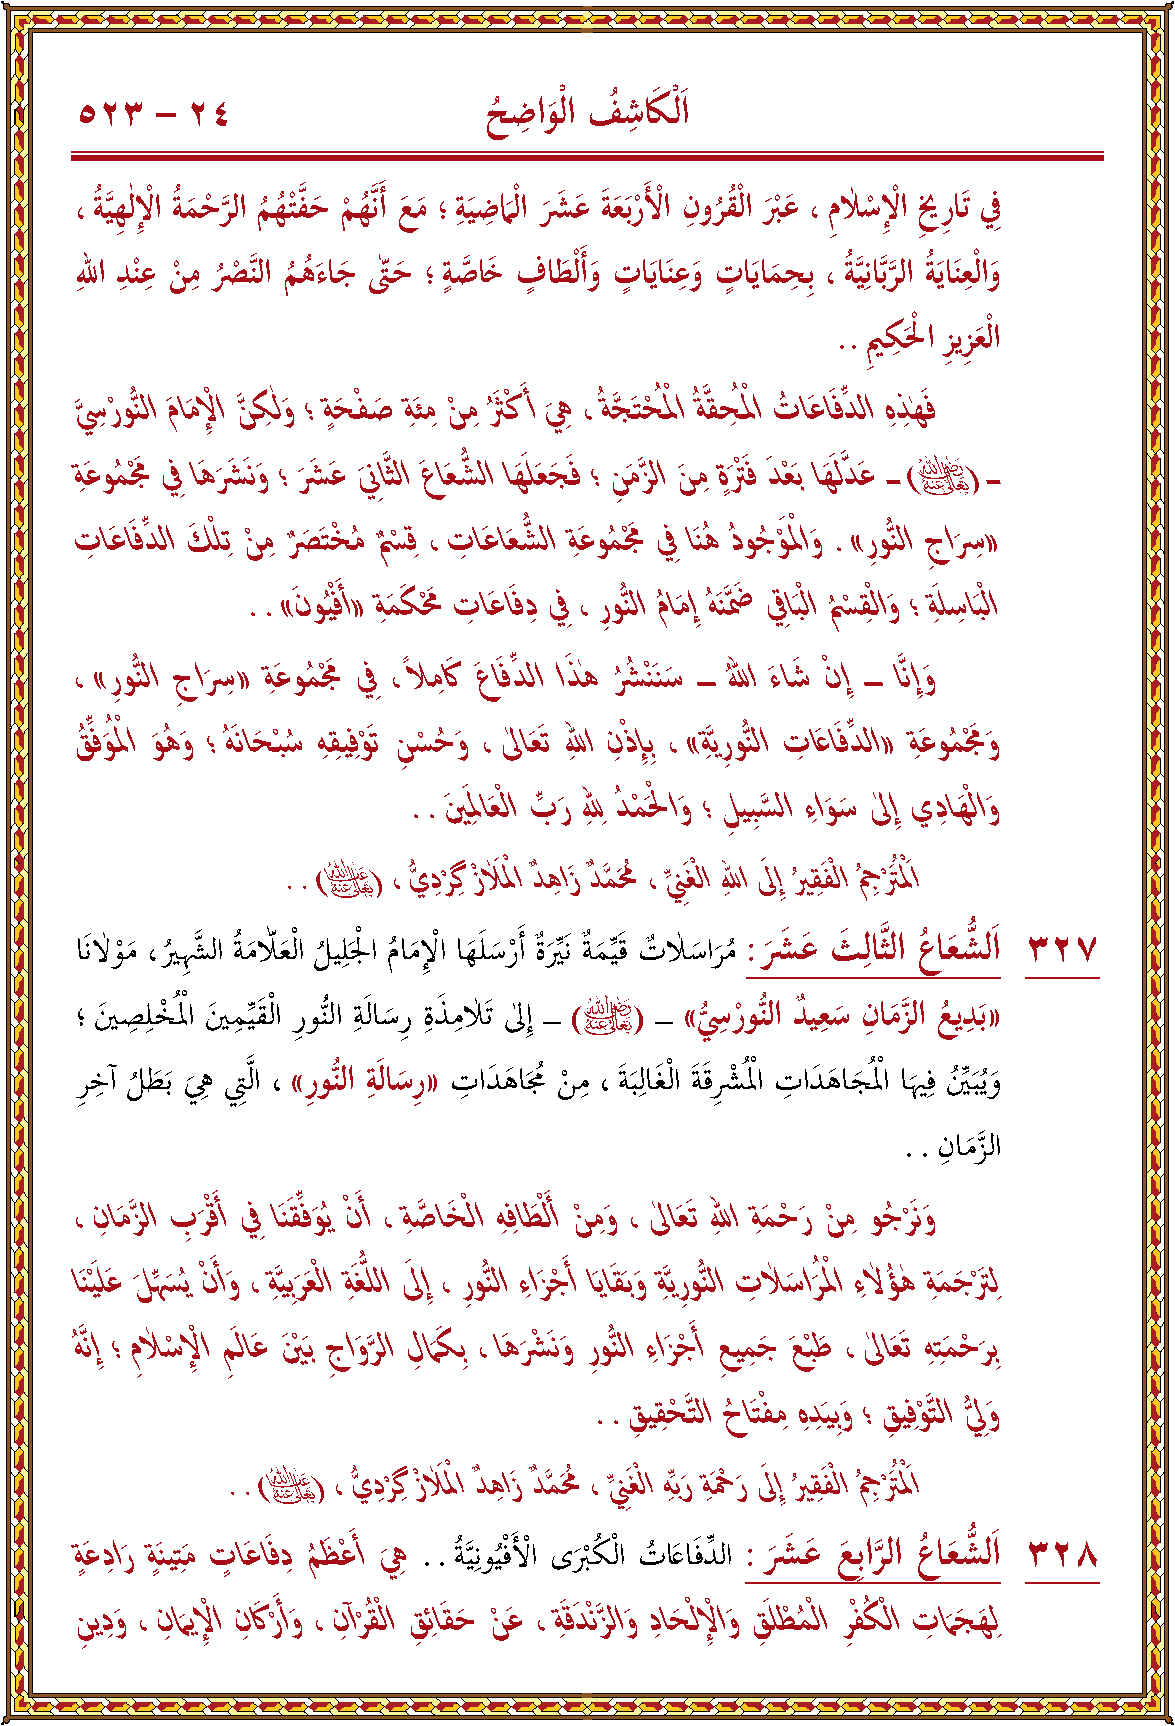 اَلْكَاشِفُ الْوَاضِحُ ٢٤ – ٥٢٣
فِي تَارِيخِ الْإِسْلَامِ ، عَبْرَ الْقُرُونِ الْأَرْبَعَةَ عَشَرَ الْمَاضِيَةِ ؛ مَعَ أَنَّهُمْ حَفَّتْهُمُ الرَّحْمَةُ الْإِلٰهِيَّةُ ،
وَالْعِنَايَةُ الرَّبَّانِيَّةُ ، بِحِمَايَاتٍ وَعِنَايَاتٍ وَأَلْطَافٍ خَاصَّةٍ ؛ حَتّٰى جَاءَهُمُ النَّصْرُ مِنْ عِنْدِ اللهِ
الْعَزِيزِ الْحَكِيمِ . .
فَهٰذِهِ الدِّفَاعَاتُ الْمُحِقَّةُ الْمُحْتَجَّةُ ، هِيَ أَكْثَرُ مِنْ مِئَةِ صَفْحَةٍ ؛ وَلٰكِنَّ الْإِمَامَ النُّورْسِيَّ
ـ (رضي الله تعالى عنه) ـ عَدَّلَهَا بَعْدَ فَتْرَةٍ مِنَ الزَّمَنِ ؛ فَجَعَلَهَا الشُّعَاعَ الثَّانِيَ عَشَرَ ؛ وَنَشَرَهَا فِي مَجْمُوعَةِ
«سِرَاجِ النُّورِ» . وَالْمَوْجُودُ هُنَا فِي مَجْمُوعَةِ الشُّعَاعَاتِ ، قِسْمٌ مُخْتَصَرٌ مِنْ تِلْكَ الدِّفَاعَاتِ
الْبَاسِلَةِ ؛ وَالْقِسْمُ الْبَاقِي ضَمَّنَهُ إِمَامُ النُّورِ ، فِي دِفَاعَاتِ مَحْكَمَةِ «أَفْيُونَ» . .
وَإِنَّنَا ـ إِنْ شَاءَ اللهُ ـ سَنَنْشُرُ هٰذَا الدِّفَاعَ كَامِلاً ، فِي مَجْمُوعَةِ «سِرَاجِ النُّورِ» ،
وَمَجْمُوعَةِ «الدِّفَاعَاتِ النُّورِيَّةِ» ، بِإِذْنِ اللهِ تَعَالٰى ، وَحُسْنِ تَوْفِيقِهِ سُبْحَانَهُ ؛ وَهُوَ الْمُوَفِّقُ
وَالْهَادِي إِلٰى سَوَاءِ السَّبِيلِ ؛ وَالْحَمْدُ لِلهِ رَبِّ الْعَالَمِينَ . .
الْمُتَرْجِمُ الْفَقِيرُ إِلَى اللهِ الْغَنِيِّ ، مُحَمَّدٌ زَاهِدٌ الْمَلَازْكِرْدِيُّ ، (رضي الله تعالى عنه) . .
٣٢٧ اَلشُّعَاعُ الثَّالِثَ عَشَرَ : مُرَاسَلَاتٌ قَيِّمَةٌ نَيِّرَةٌ أَرْسَلَهَا الْإِمَامُ الْجَلِيلُ الْعَلَّامَةُ الشَّهِيرُ ، مَوْلَانَا
«بَدِيعُ الزَّمَانِ سَعِيدٌ النُّورْسِيُّ» ـ (رضي الله تعالى عنه) ـ إِلٰى تَلَامِذَةِ رِسَالَةِ النُّورِ الْقَيِّمِينَ الْمُخْلِصِينَ ؛
وَيُبَيِّنُ فِيهَا الْمُجَاهَدَاتِ الْمُشْرِقَةَ الْغَالِبَةَ ، مِنْ مُجَاهَدَاتِ «رِسَالَةِ النُّورِ» ، الَّتِي هِيَ بَطَلُ آخِرِ
الزَّمَانِ . .
وَنَرْجُو مِنْ رَحْمَةِ اللهِ تَعَالٰى ، وَمِنْ أَلْطَافِهِ الْخَاصَّةِ ، أَنْ يُوَفِّقَنَا فِي أَقْرَبِ الزَّمَانِ ،
لِتَرْجَمَةِ هٰؤُلَاءِ الْمُرَاسَلَاتِ النُّورِيَّةِ وَبَقَايَا أَجْزَاءِ النُّورِ ، إِلَى اللُّغَةِ الْعَرَبِيَّةِ ، وَأَنْ يُسَهِّلَ عَلَيْنَا
بِرَحْمَتِهِ تَعَالٰى ، طَبْعَ جَمِيعِ أَجْزَاءِ النُّورِ وَنَشْرَهَا ، بِكَمَالِ الرَّوَاجِ بَيْنَ عَالَمِ الْإِسْلَامِ ؛ إِنَّهُ
وَلِيُّ التَّوْفِيقِ ؛ وَبِيَدِهِ مِفْتَاحُ التَّحْقِيقِ . .
الْمُتَرْجِمُ الْفَقِيرُ إِلَى رَحْمَةِ رَبِّهِ الْغَنِيِّ ، مُحَمَّدٌ زَاهِدٌ الْمَلَازْكِرْدِيُّ ، (رضي الله تعالى عنه) . .
٣٢٨ اَلشُّعَاعُ الرَّابِعَ عَشَرَ : الدِّفَاعَاتُ الْكُبْرَى الْأَفْيُونِيَّةُ . . هِيَ أَعْظَمُ دِفَاعَاتٍ مَتِينَةٍ رَادِعَةٍ
لِهَجَمَاتِ الْكُفْرِ الْمُطْلَقِ وَالْإِلْحَادِ وَالزَّنْدَقَةِ ، عَنْ حَقَائِقِ الْقُرْآنِ ، وَأَرْكَانِ الْإِيمَانِ ، وَدِينِ